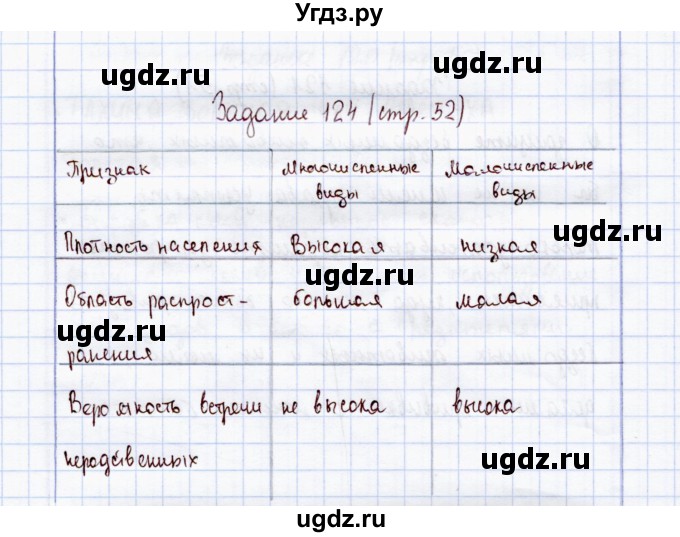 Угдз.ру
ugdz.ru ugdz.ru
Задание 124 (стр. 52)
Признак Многочисленные виды Малочисленные виды
ugdz.ru ugdz.ru
Плотность населения Высокая низкая
ugdz.ru
Область распрост- большая малая
ugdz.ru
ранения
Вероятность встречи не высока высока
неродственных
ugdz.ru
ugdz.ru